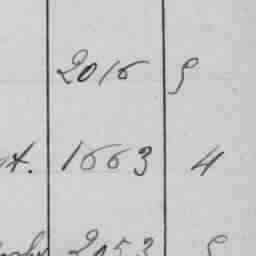 2016 9
t. 1663 4
2053